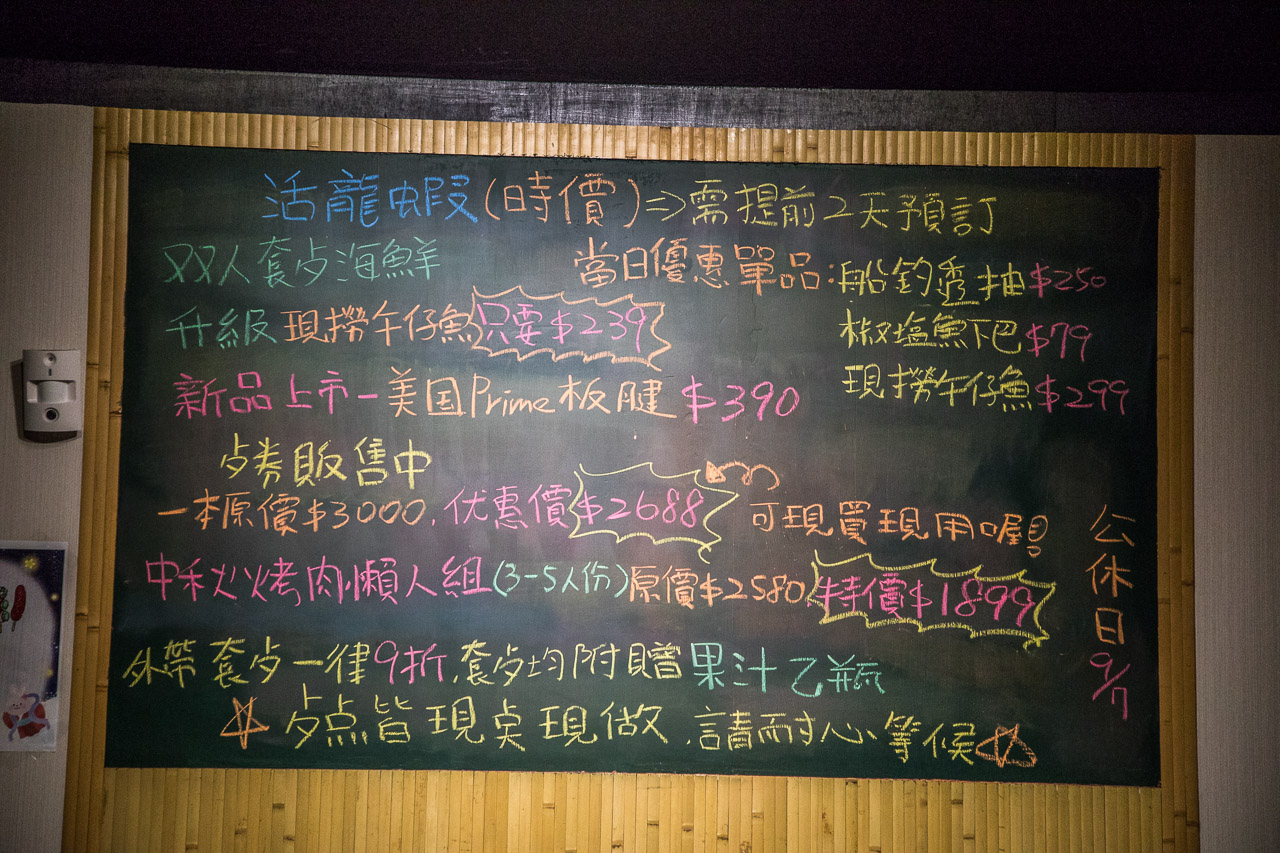 活龍蝦(時價)⇒需提前2天預訂
双人套歺海鮮
升級現撈午仔魚只要$239
當日優惠單品:船釣透抽$250
椒塩魚下巴$79
現撈午仔魚$299
新品上市-美国Prime板腱 $390
歺券販售中
一本原價$3000,优惠價$2688 可現買現用喔!
中秋烤肉懶人組(3-5人份)原價$2580,特價$1899
公休日9/7
外帶套歺一律9折,套歺均附贈果汁乙瓶
☆歺点皆現点現做,請耐心等候☆